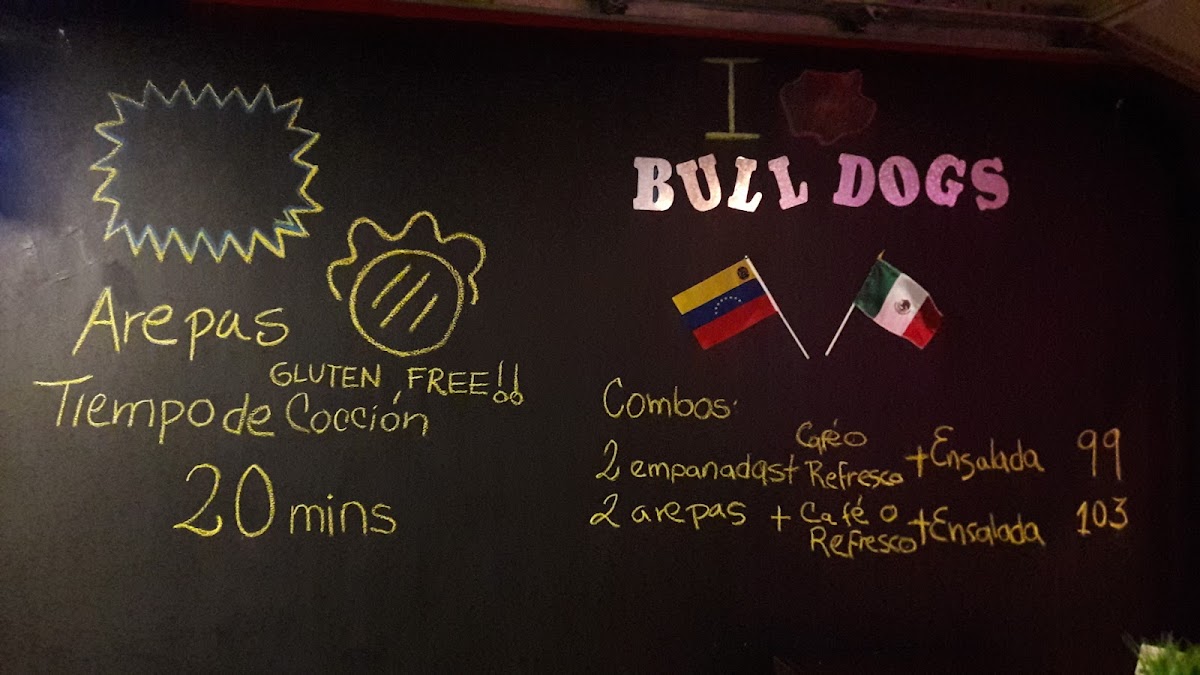 Arepas
GLUTEN FREE!!
Tiempo de Cocción
20 mins
I
BULL DOGS
Combos:
2 empanadas + Café o Refresco + Ensalada 99
2 arepas + Café o Refresco + Ensalada 103